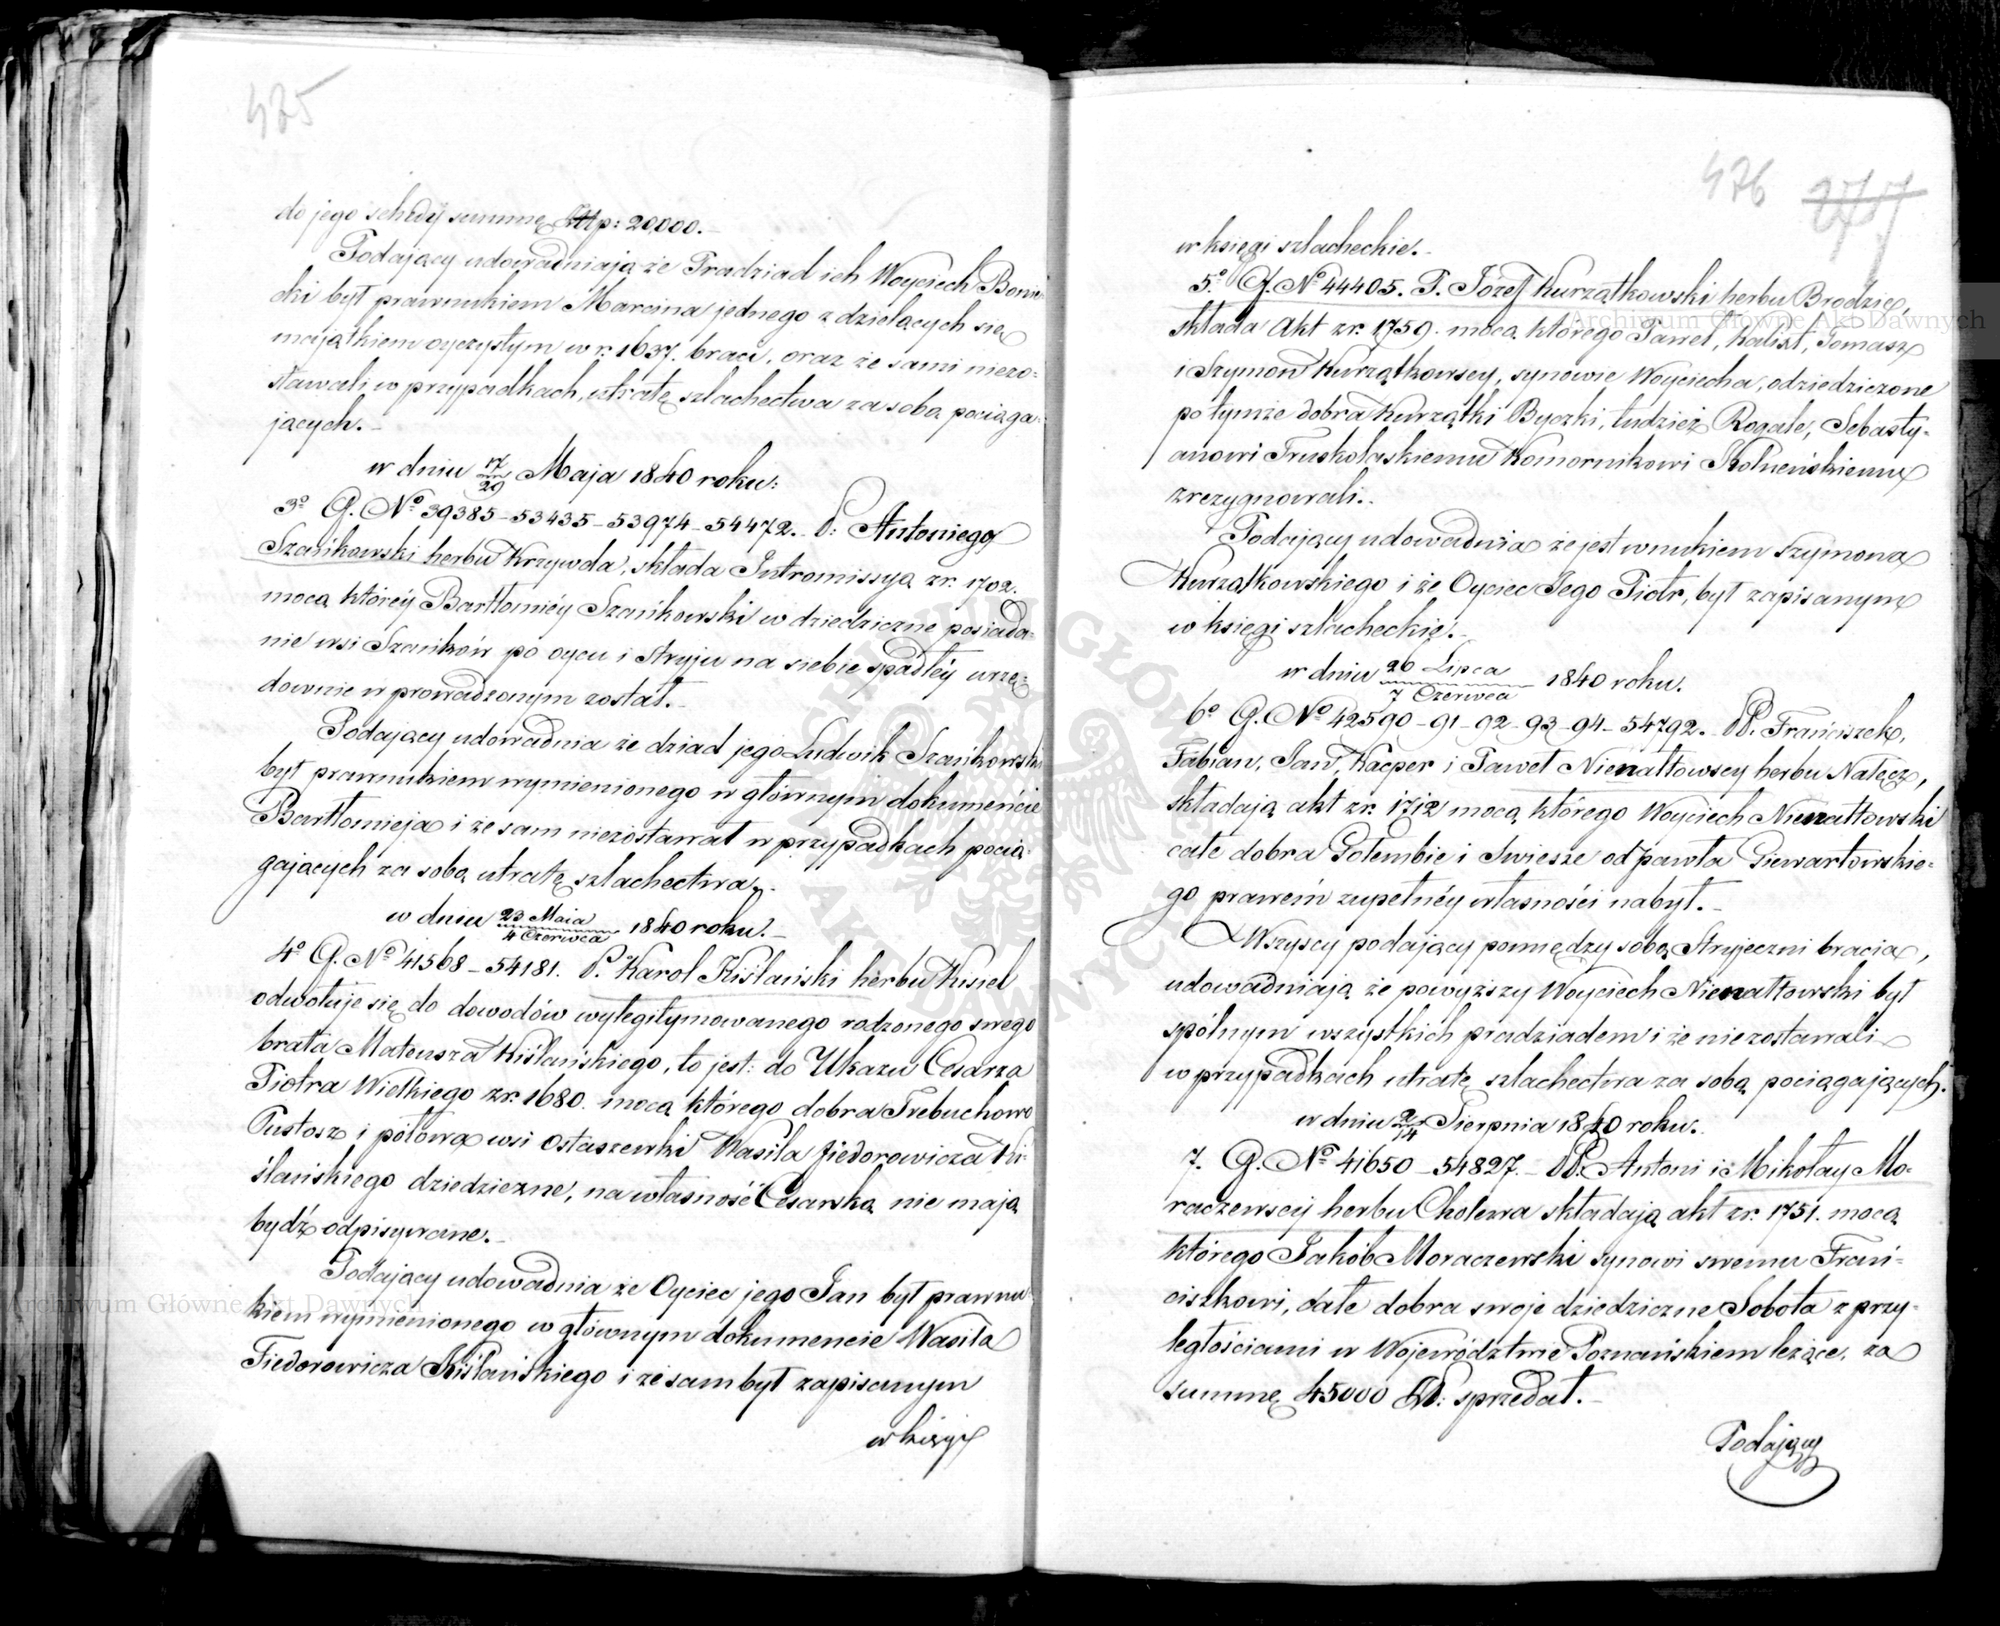 425
do jego schedy summę Złtp: 20,000.
Podający udowadniają że Pradziad ich Woyciech Boni-
cki był prawnukiem Marcina jednego z dzielących się
majątkiem oyczystym w r. 1637. braci, oraz że sami niezo-
stawali w przypadkach, utratę szlachectwa za sobą pociąga-
jących.
w dniu 17/29 Maja 1840 roku:
3º G. Nº 39385-53435-53974-54472. P: Antoniego
Szańkowski herbu Krzywda, składa Intromissyą z r. 1702.
mocą któréy Bartłomiéy Szańkowski w dziedziczne posiada-
nie wsi Szańków po oycu i stryju na siebie spadłéy urzę-
downie w prowadzonym został.
Podający udowadnia że dziad jego Ludwik Szańkowski
był prawnukiem wymienionego w głównym dokumencie
Bartłomieja i że sam niezostawał w przypadkach pocią-
gających za sobą utratę szlachectwa.
w dniu 23 Maia/4 Czerwca 1840 roku.
4º G. Nº 41568-54181. P. Karol Kiślański herbu Kisiel
odwołuje się do dowodów wylegitymowanego rodzonego swego
brata Mateusza Kiślańskiego, to jest: do Ukazu Cesarza
Piotra Wielkiego z r. 1680. mocą którego dobra Trebuchowo
Pustosz i połowa wsi Ostaszewki Wasila Fiedorowicza Ki-
ślańskiego dziedziczne, na własność Cesarską nie mają
bydź odpisywane.
Podający udowadnia że Oyciec jego Jan był prawnu-
kiem wymienionego w głównym dokumencie Wasila
Fiedorowicza Kiślańskiego i że sam był zapisanym
w księgi
476 277
w księgi szlacheckie.
5º G. Nº 44405. P. Józef Kurządkowski herbu Brodzic,
składa Akt z r. 1759. mocą którego Paweł, Kalixt, Tomasz
i Szymon Kurządkowscy, synowie Woyciecha, odziedziczone
po tymże dobra Kurządki Byczki, tudzież Rogale, Sebasty-
anowi Truskolaskiemu Komornikowi Kolneńskiemu
zrezygnowali.
Podający udowadnia że jest wnukiem Szymona
Kurządkowskiego i że Oyciec Jego Piotr, był zapisanym
w księgi szlacheckie.
w dniu 26 Lipca/7 Czerwca 1840 roku.
6º G. Nº 42590-91-92-93-94-54792. PP. Franciszek,
Fabian, Jan, Kacper i Paweł Nienałtowscy herbu Nałęcz,
składają akt z r. 1712 mocą którego Woyciech Nienałtowski
całe dobra Gołembie i Swiesze od Pawła Giewartowskie-
go prawem zupełnéy własności nabył.
Wszyscy podający pomiędzy sobą Stryjeczni bracia,
udowadniają że powyższy Woyciech Nienałtowski był
spólnym wszystkich pradziadem i że niezostawali
w przypadkach utratę szlachectwa za sobą pociągających.
w dniu 2/14 Sierpnia 1840 roku.
7. G. Nº 41650-54827. PP. Antoni i Mikołay Mo-
raczewscy herbu Cholewa składają akt z r. 1751. mocą
którego Jakób Moraczewski synowi swemu Fran-
ciszkowi, całe dobra swoje dziedziczne Sobota z przy-
ległościami w Województwie Poznańskiem leżące, za
summę 45000 Zł: sprzedał.
Podający
Archiwum Główne Akt Dawnych
Archiwum Główne Akt Dawnych
ARCHIWUM GŁÓWNE AKT DAWNYCH